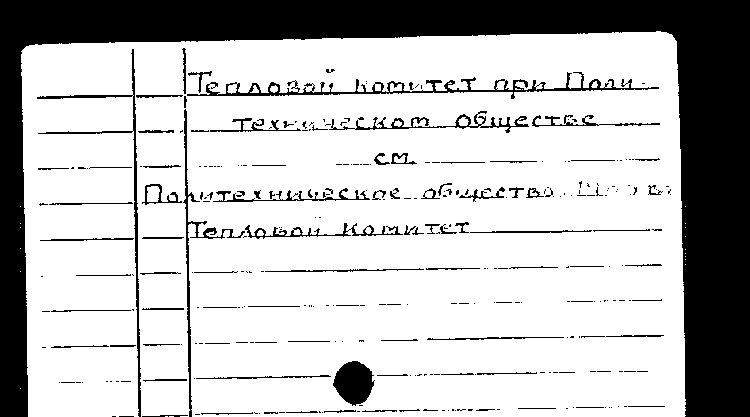 Тепловой комитет при Поли-
техническом обществе
см.
Политехническое общество.
Тепловой Комитет